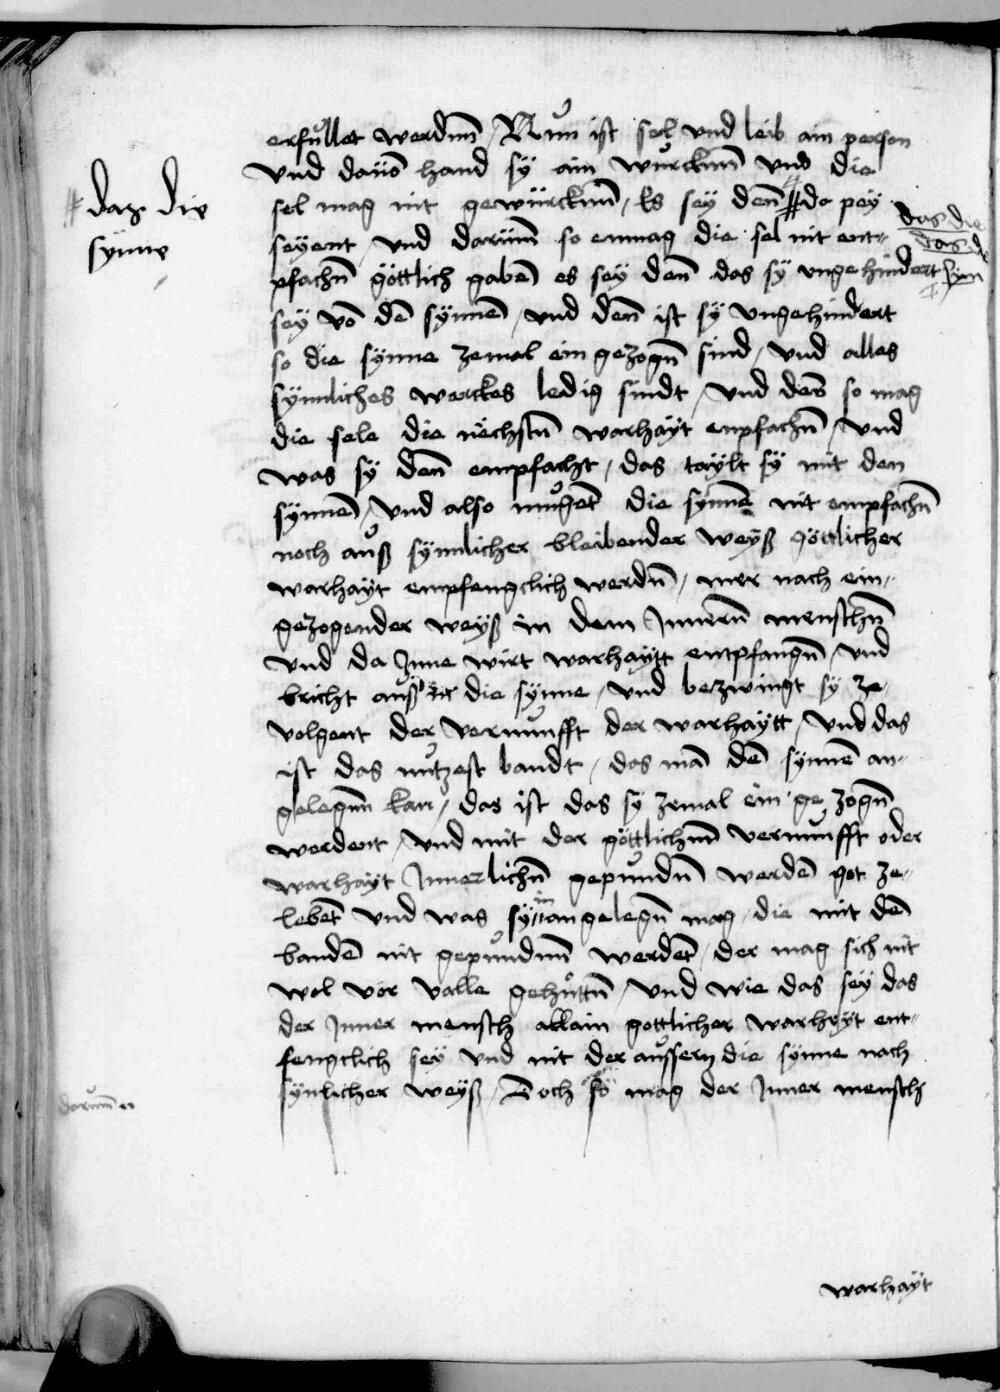 erfüllet werdnn / Nun ist sel und leib ain person
vnd dauo᷃ hand sÿ ain wurcknn vnd die
# daz die
sÿnne
sel mag nit gewürcknn / Es seÿ den᷃ # do peÿ
das die
das die
sÿn
seyent / vnd darumm so enmag die sel nit ent-
pfachn᷃ göttlich gabe᷃ es seÿ den᷃ das sÿ vngehindert
seÿ vo᷃ de᷃ sÿnne᷃ / vnd den᷃ ist sÿ vngehindert
so die sÿnne zemal ein gezogn᷃ sind / vnd alles
sÿnnliches werckes ledig sindt / vnd den᷃ so mag
die sele die nëchstn᷃ warhaÿt enpfachn᷃ / vnd
was sÿ den᷃ empfacht / das taÿlt sÿ mit den
sÿnne᷃ / vnd also mugent die sÿnne᷃ nit empfachn᷃
noch auß sÿnnlicher bleibender weÿß göttlicher
warhaÿt empfengclich werdn᷃ / mer nach ein-
gezogender weÿß in dem Jnnern᷃ menschn᷃
vnd da Jnne wirt warhaÿtt entpfangn᷃ / vnd
bricht auß in die sÿnne / vnd bezwingt sÿ ze
volgent der vernunfft der warhaÿtt / vnd das
ist das nutzest bandt / das ma᷃ de᷃ sÿnne᷃ an-
gelegnn kan / das ist das sÿ zemal ein ge zogn᷃
werdent / vnd mit der göttlichnn vernunfft oder
warhaÿt Jnnerlichn᷃ gepundn᷃ werde᷃ got ze-
lebe᷃t vnd was sÿn᷃ im angelegn᷃ mag / die mit de᷃
bande᷃ nit gepundnn werde᷃t / der mag sich nit
wol vor valle gehüttn᷃ / vnd wie das seÿ das
der Jnner mensch allain gottlicher warheÿt ent-
fengclich seÿ vnd nit der aussern die sÿnne nach
sÿnlicher weÿß / Doch so mag der Jnner mensch
darumm
warhaÿt